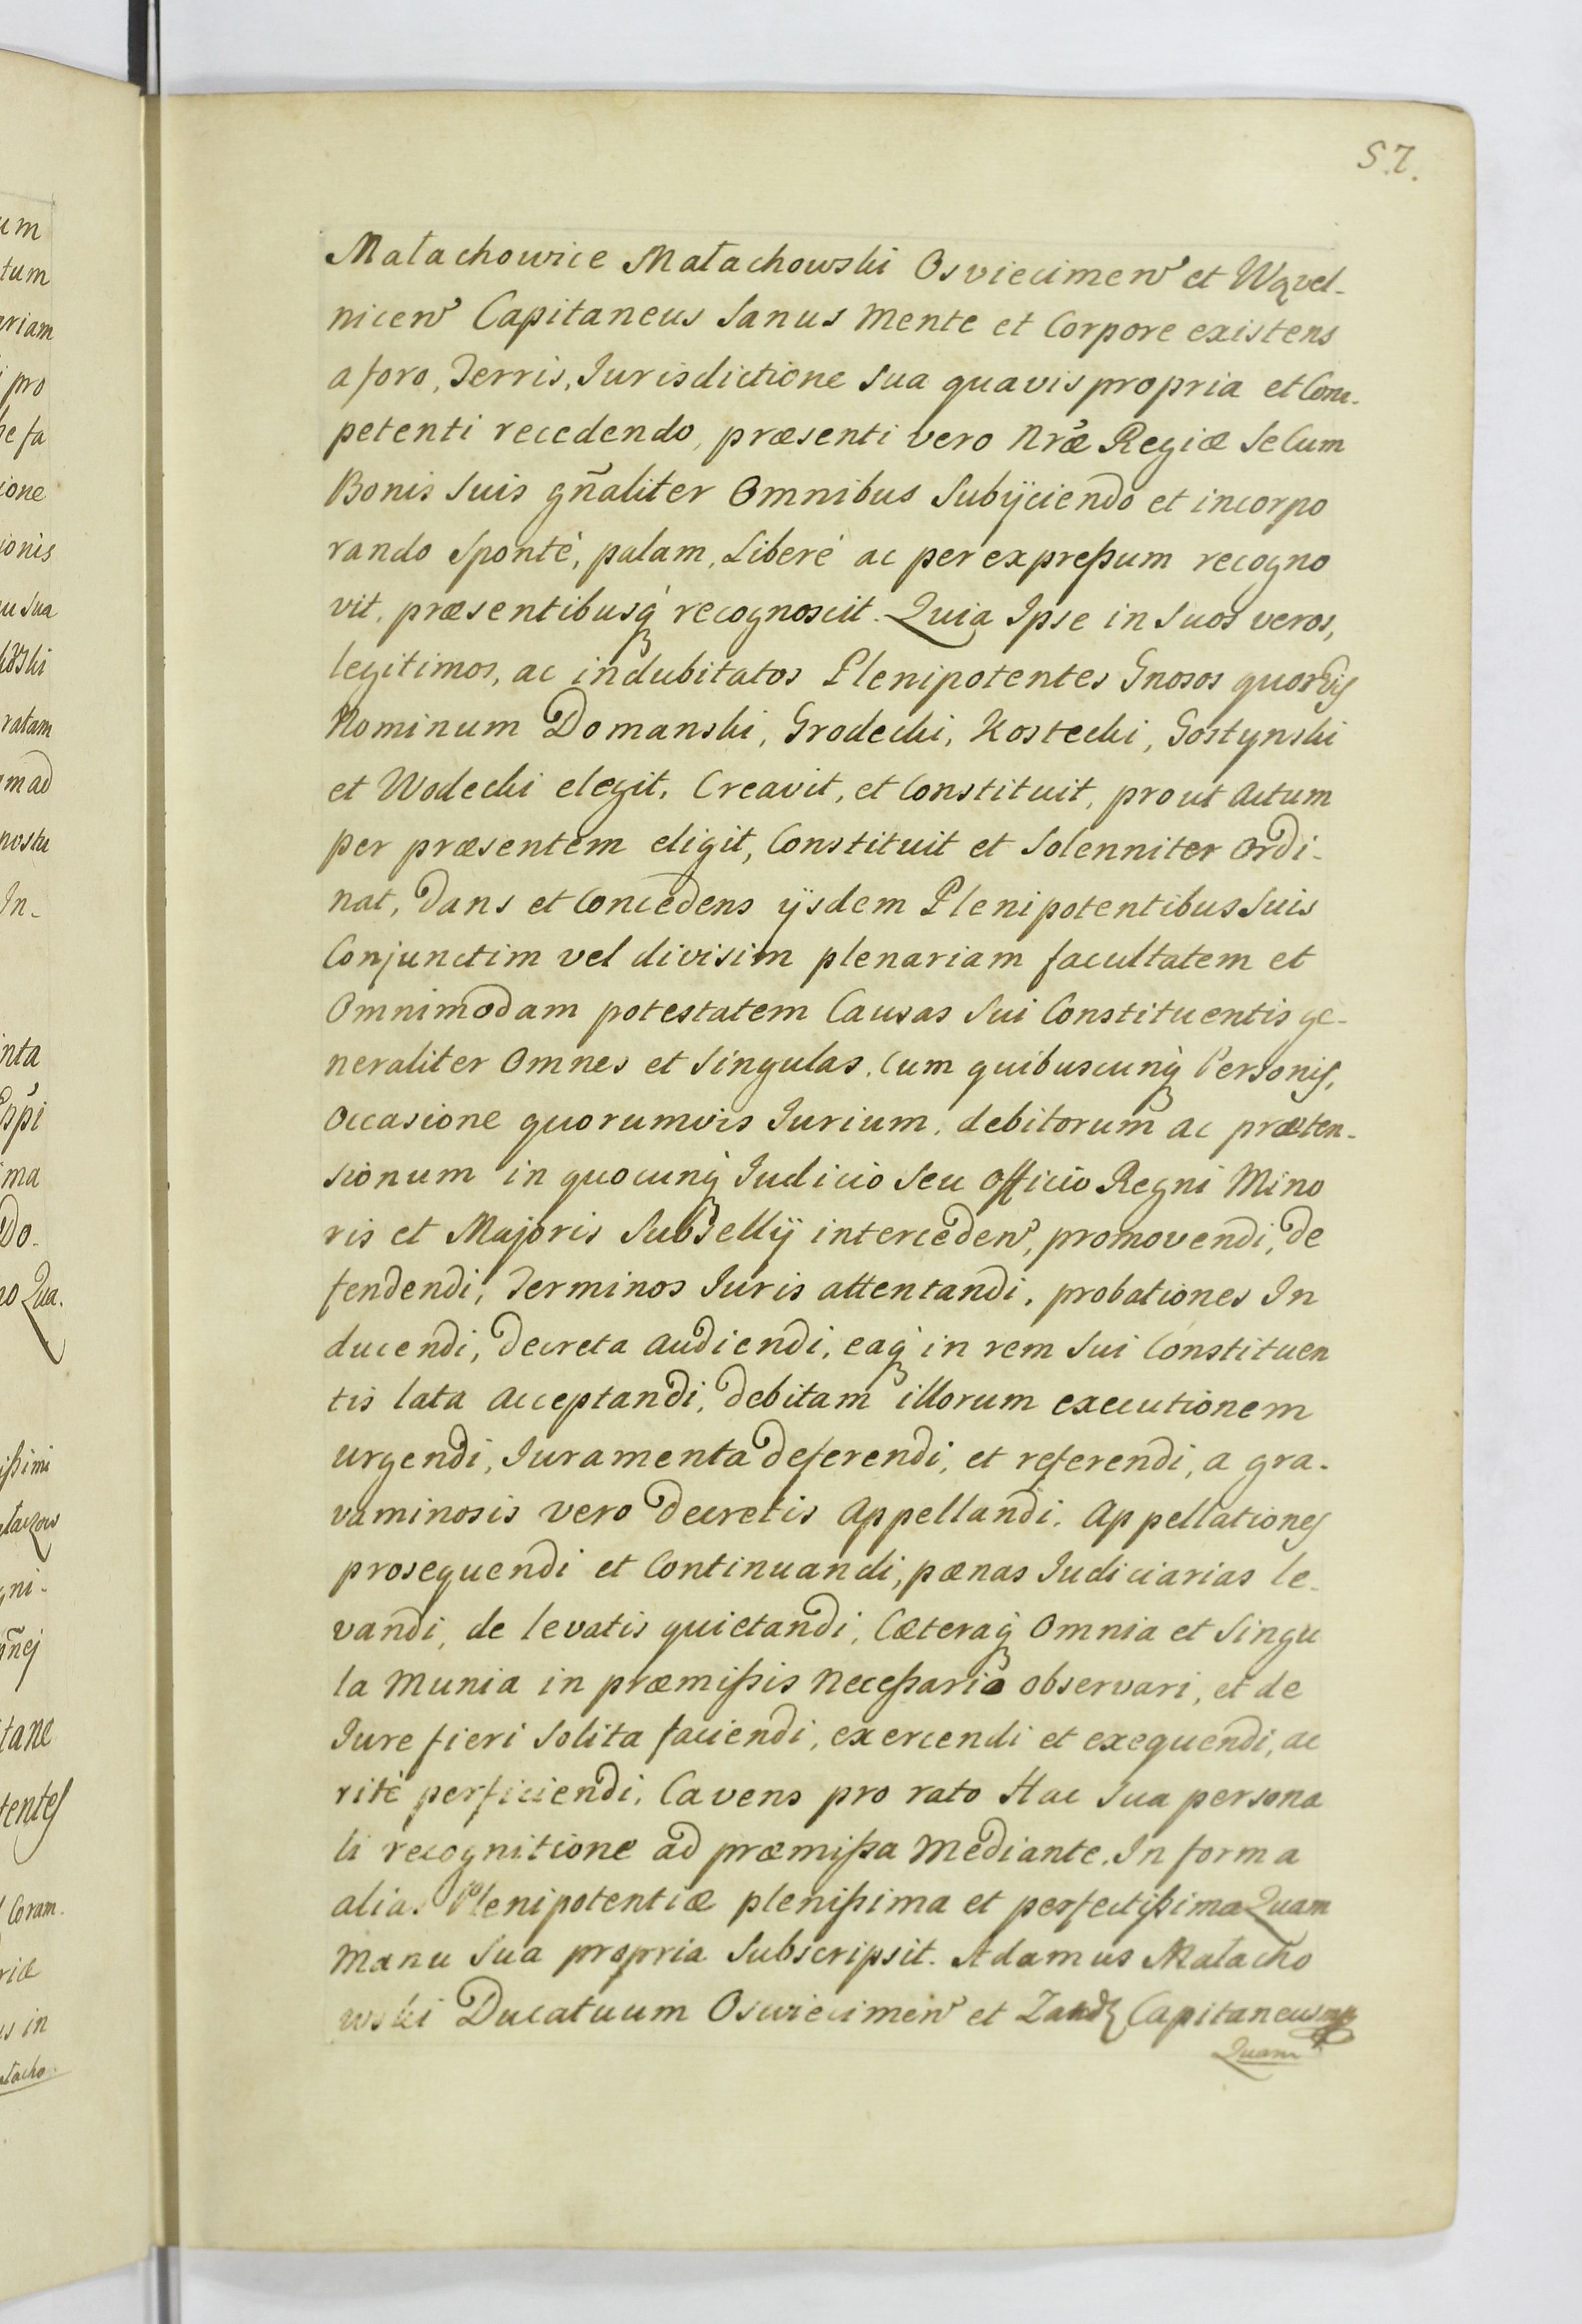 57.
Małachowice Małachowski Osviecimen͠ et Wąvel-
nicen͠ Capitaneus Sanus Mente et Corpore existens
a foro, Terris, Jurisdictione Sua quavis propria et Com-
petenti recedendo, præsenti vero Nræ̃ Regiæ Se Cum
Bonis Suis gn̄aliter Omnibus Subijciendo et incorpo
rando Spontè, palam, Liberè ac per expreßum recogno
vit, præsentibusq̀ recognoscit. Quia Ipse in Suos veros,
legitimos, ac indubitatos Plenipotentes Gnosos quorvis
Nominum Domanski, Grodecki, Kostecki, Gostynski
et Wodecki elegit, Creavit, et Constituit, prout Actum
per præsentem eligit, Constituit et Solenniter Ordi-
nat, Dans et Concedens ijsdem Plenipotentibus Suis
Conjunctim vel divisim plenariam facultatem et
Omnimodam potestatem Causas Sui Constituentis ge-
neraliter Omnes et Singulas, Cum quibuscunq̀ Personis,
Occasione quorumvis Jurium, debitorum ac præten-
sionum in quocunq̀ Judicio Seu Officio Regni Mino
ris et Majoris Subsellij interceden͠, promovendi, De
fendendi, Terminos Juris attentandi, probationes In
ducendi, Decreta Audiendi, eaq̀ in rem Sui Constituen
tis lata Acceptandi, Debitam illorum executionem
Urgendi, Juramenta Deferendi, et referendi, a gra-
vaminosis vero Decretis Appellandi, Appellationes
prosequendi et Continuandi, pænas Judiciarias le-
vandi, de levatis quietandi, Cæteraq̀ Omnia et Singu
la Munia in præmißis Neceßario Observari, et de
Jure fieri Solita faciendi, exercendi et exequendi, ac
ritè perficiendi, Cavens pro rato Hac Sua persona
li recognitione ad præmißa Mediante. In forma
alias Plenipotentiæ plenißima et perfectißima Quam
Manu Sua propria Subscripsit. Adamus Małacho
wski Ducatuum Oswiecimen͠ et Zand Capitaneus mp
Quam